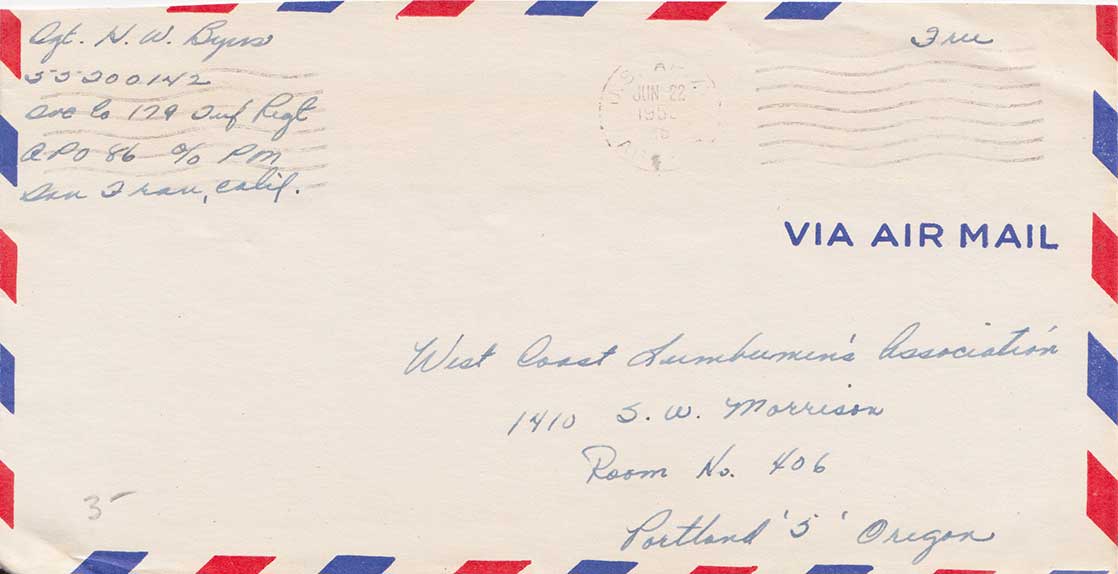 Sgt. H. W. Byers
55200142
Svc Co 179 Inf Regt
APO 86 c/o PM
San Fran, Calif.
Free
U.S. AR
JUN 22
195
VIA AIR MAIL
West Coast Lumbermen's Association
1410 S. W. Morrison
Room No. 406
Portland '5' Oregon
3-